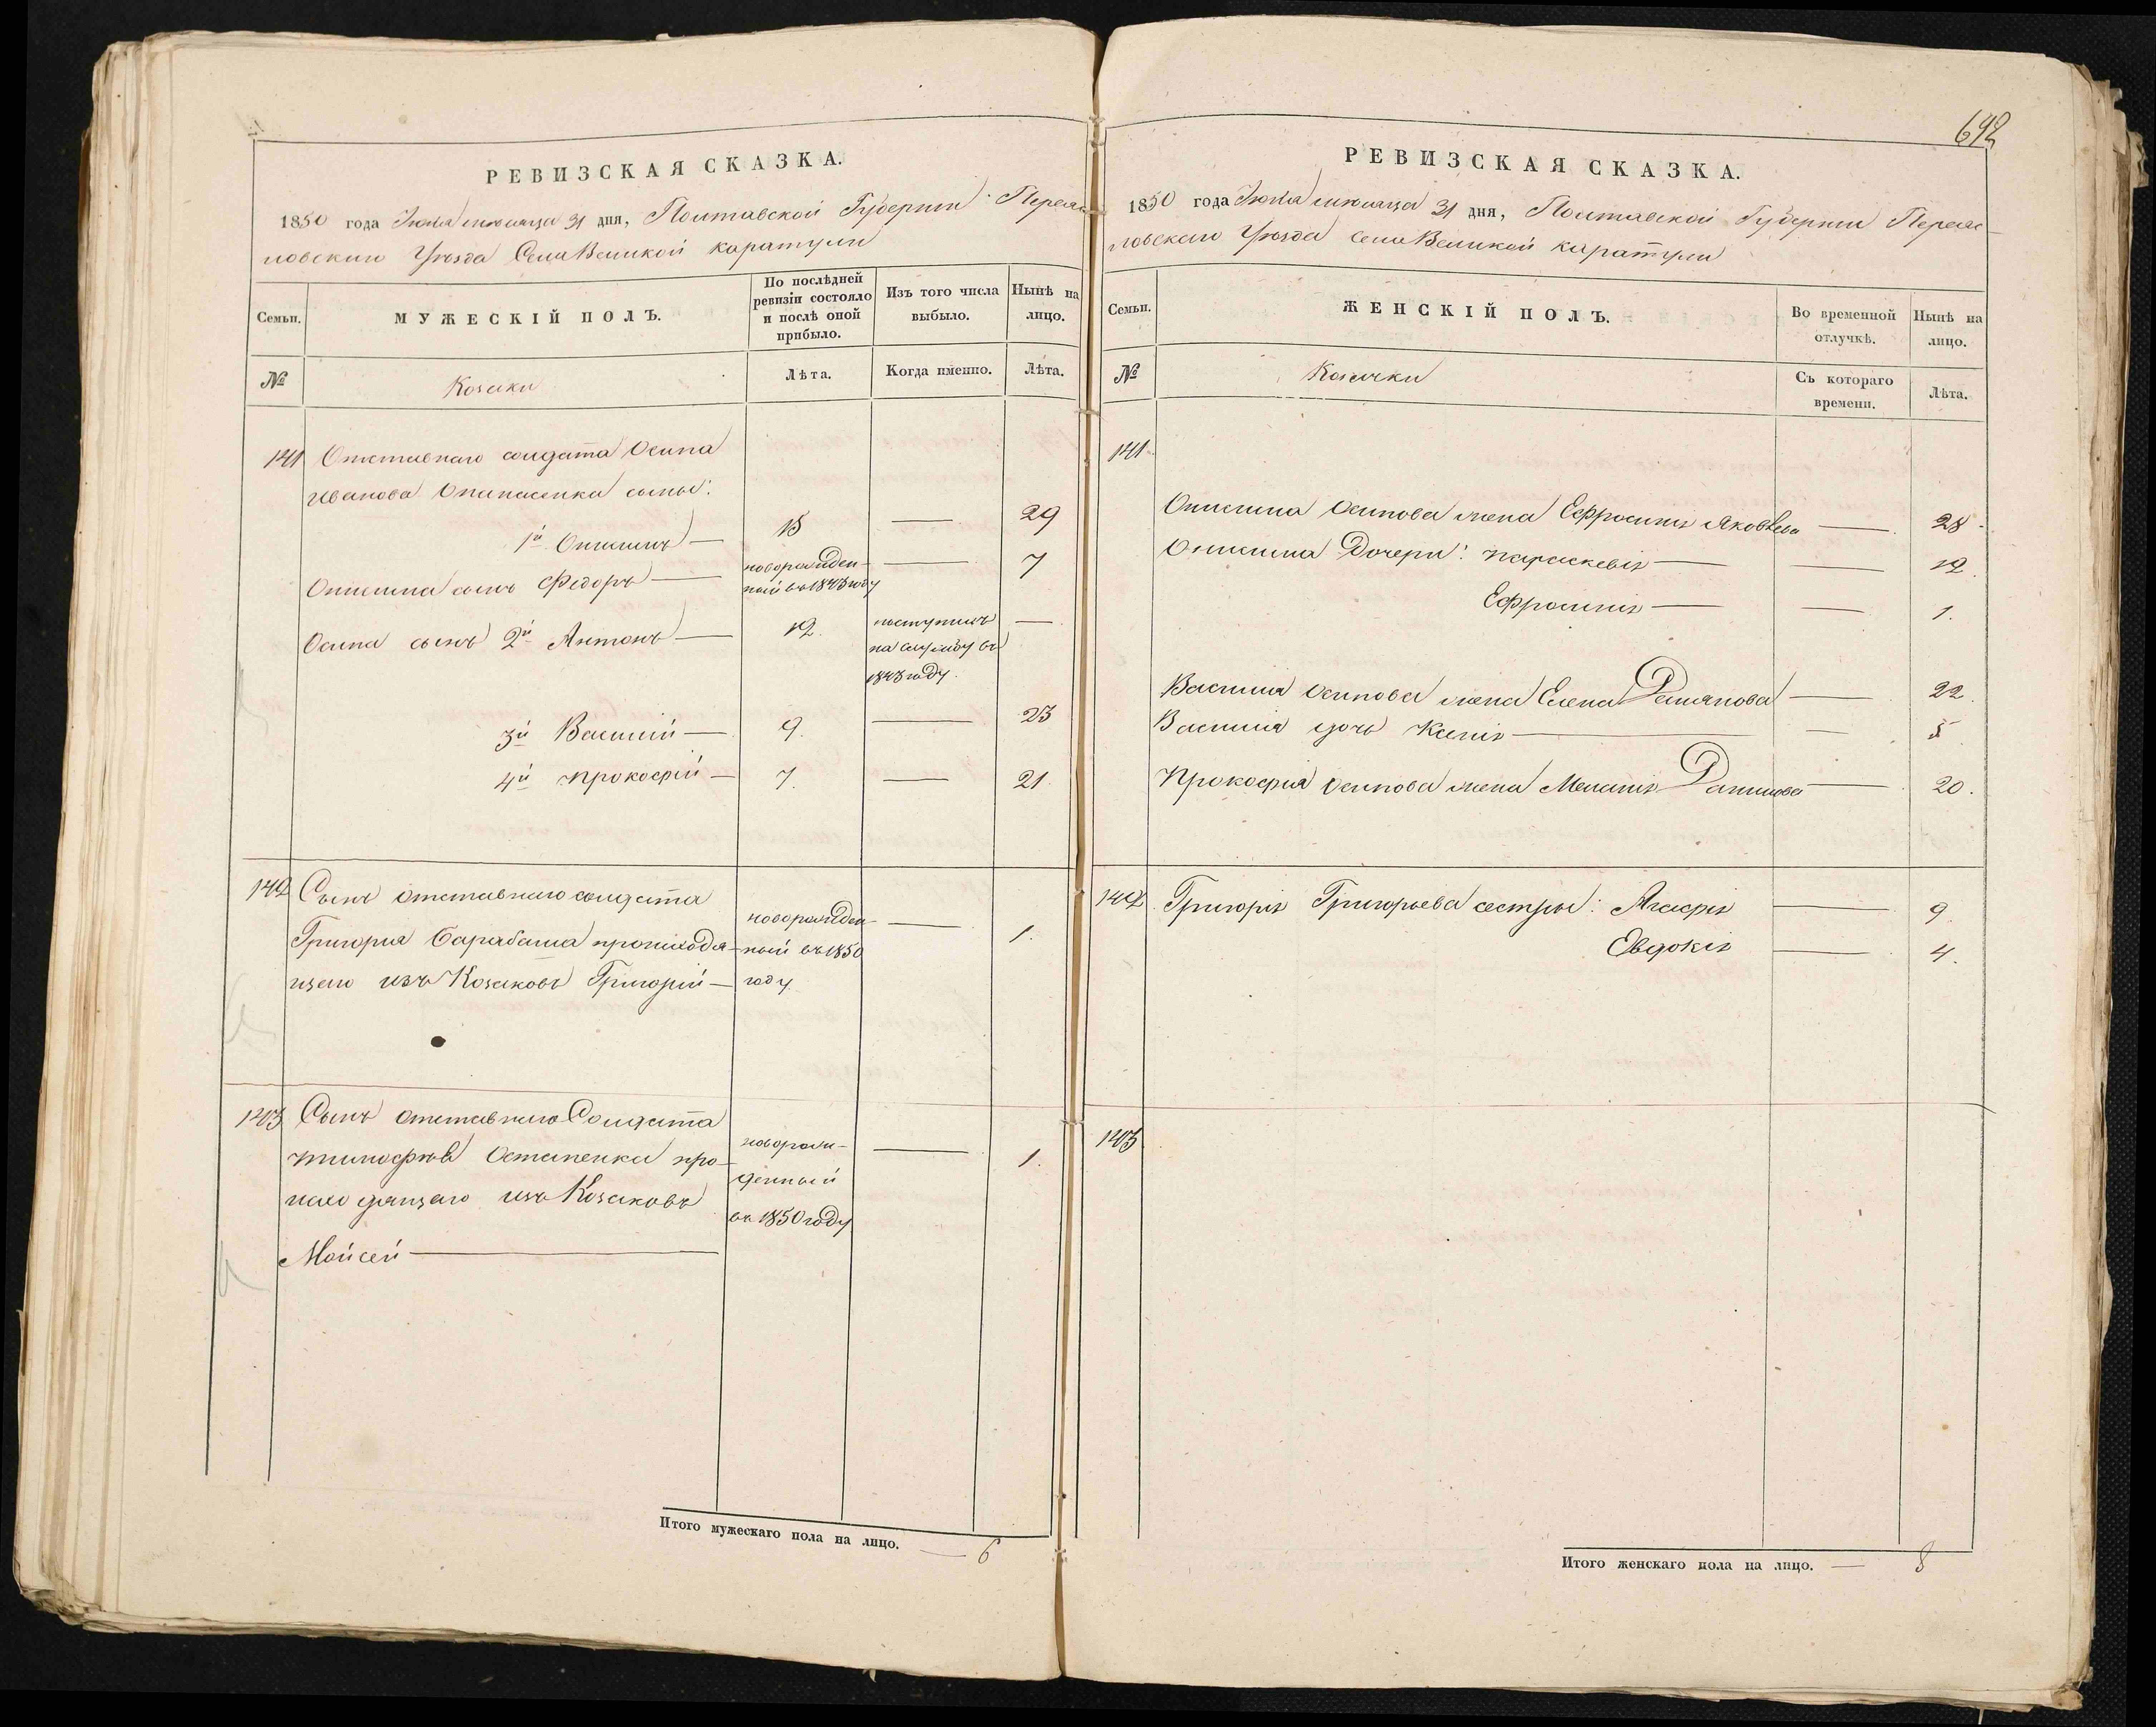 РЕВИЗСКАЯ СКАЗКА.
1850 года Июля месяца 31 дня, Полтавской Губернии Переяс
ловскаго Уѣзда Села Великой каратули
Семьи.
МУЖЕСКІЙ ПОЛЪ.
По послѣдней ревизіи состояло и послѣ оной прибыло.
Изъ того числа выбыло.
Нынѣ на лицо.
№
Козаки
Лѣта.
Когда именно.
Лѣта.
141 Отставнаго солдата Осипа
Иванова сыны:
1й Онисимъ — 15 — 29
Онисима сынъ Федоръ — новорожден- — 7
ный въ 1843 году
Осипа сынъ 2й Антонъ — 12. поступилъ —
на службу въ
1843 году.
3й Василій — 9. — 23
4й Прокофій — 7. — 21.
142 Сынъ отставнаго солдата
Григорія Барабаша происходя- новорожден- — 1.
щаго изъ Козаковъ Григорій — ный въ 1850
году
143 Сынъ отставнаго Солдата
Тимофѣя Остапенка про- новорож- — 1.
исходящаго изъ Козаковъ денный
въ 1850 году
Мойсей —
Итого мужескаго пола на лицо. — 6
692
РЕВИЗСКАЯ СКАЗКА.
1850 года Июля месяца 31 дня, Полтавской Губернии Переяс
ловскаго Уѣзда села Великой каратули
Семьи.
ЖЕНСКІЙ ПОЛЪ.
Во временной отлучкѣ.
Нынѣ на лицо.
№
Козачки
Съ котораго времени.
Лѣта.
141.
Онисима Осипова жена Ефросинія Яковлева — 28.
Онисима Дочери: Параскевія — — 12.
Ефросинія — — 1.
Василія Осипова жена Елена Демянова — 22.
Василія дочь Ксенія — — 5
Прокофія Осипова жена Меланія Данилова — 20.
142. Григорія Григорьева сестры: Агафія — 9.
Евдокія — 4.
143.
Итого женскаго пола на лицо. — 8